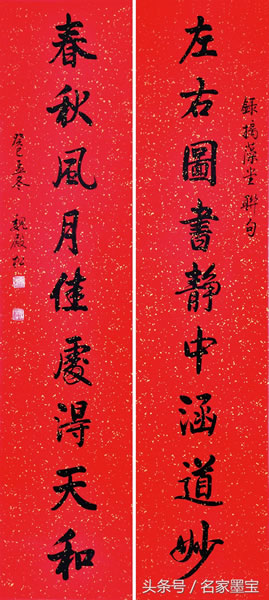 錄摛藻堂聯句
左右圖書靜中涵道妙
春秋風月佳處得天和
癸巳孟冬 魏殿松
头条号 / 名家墨宝